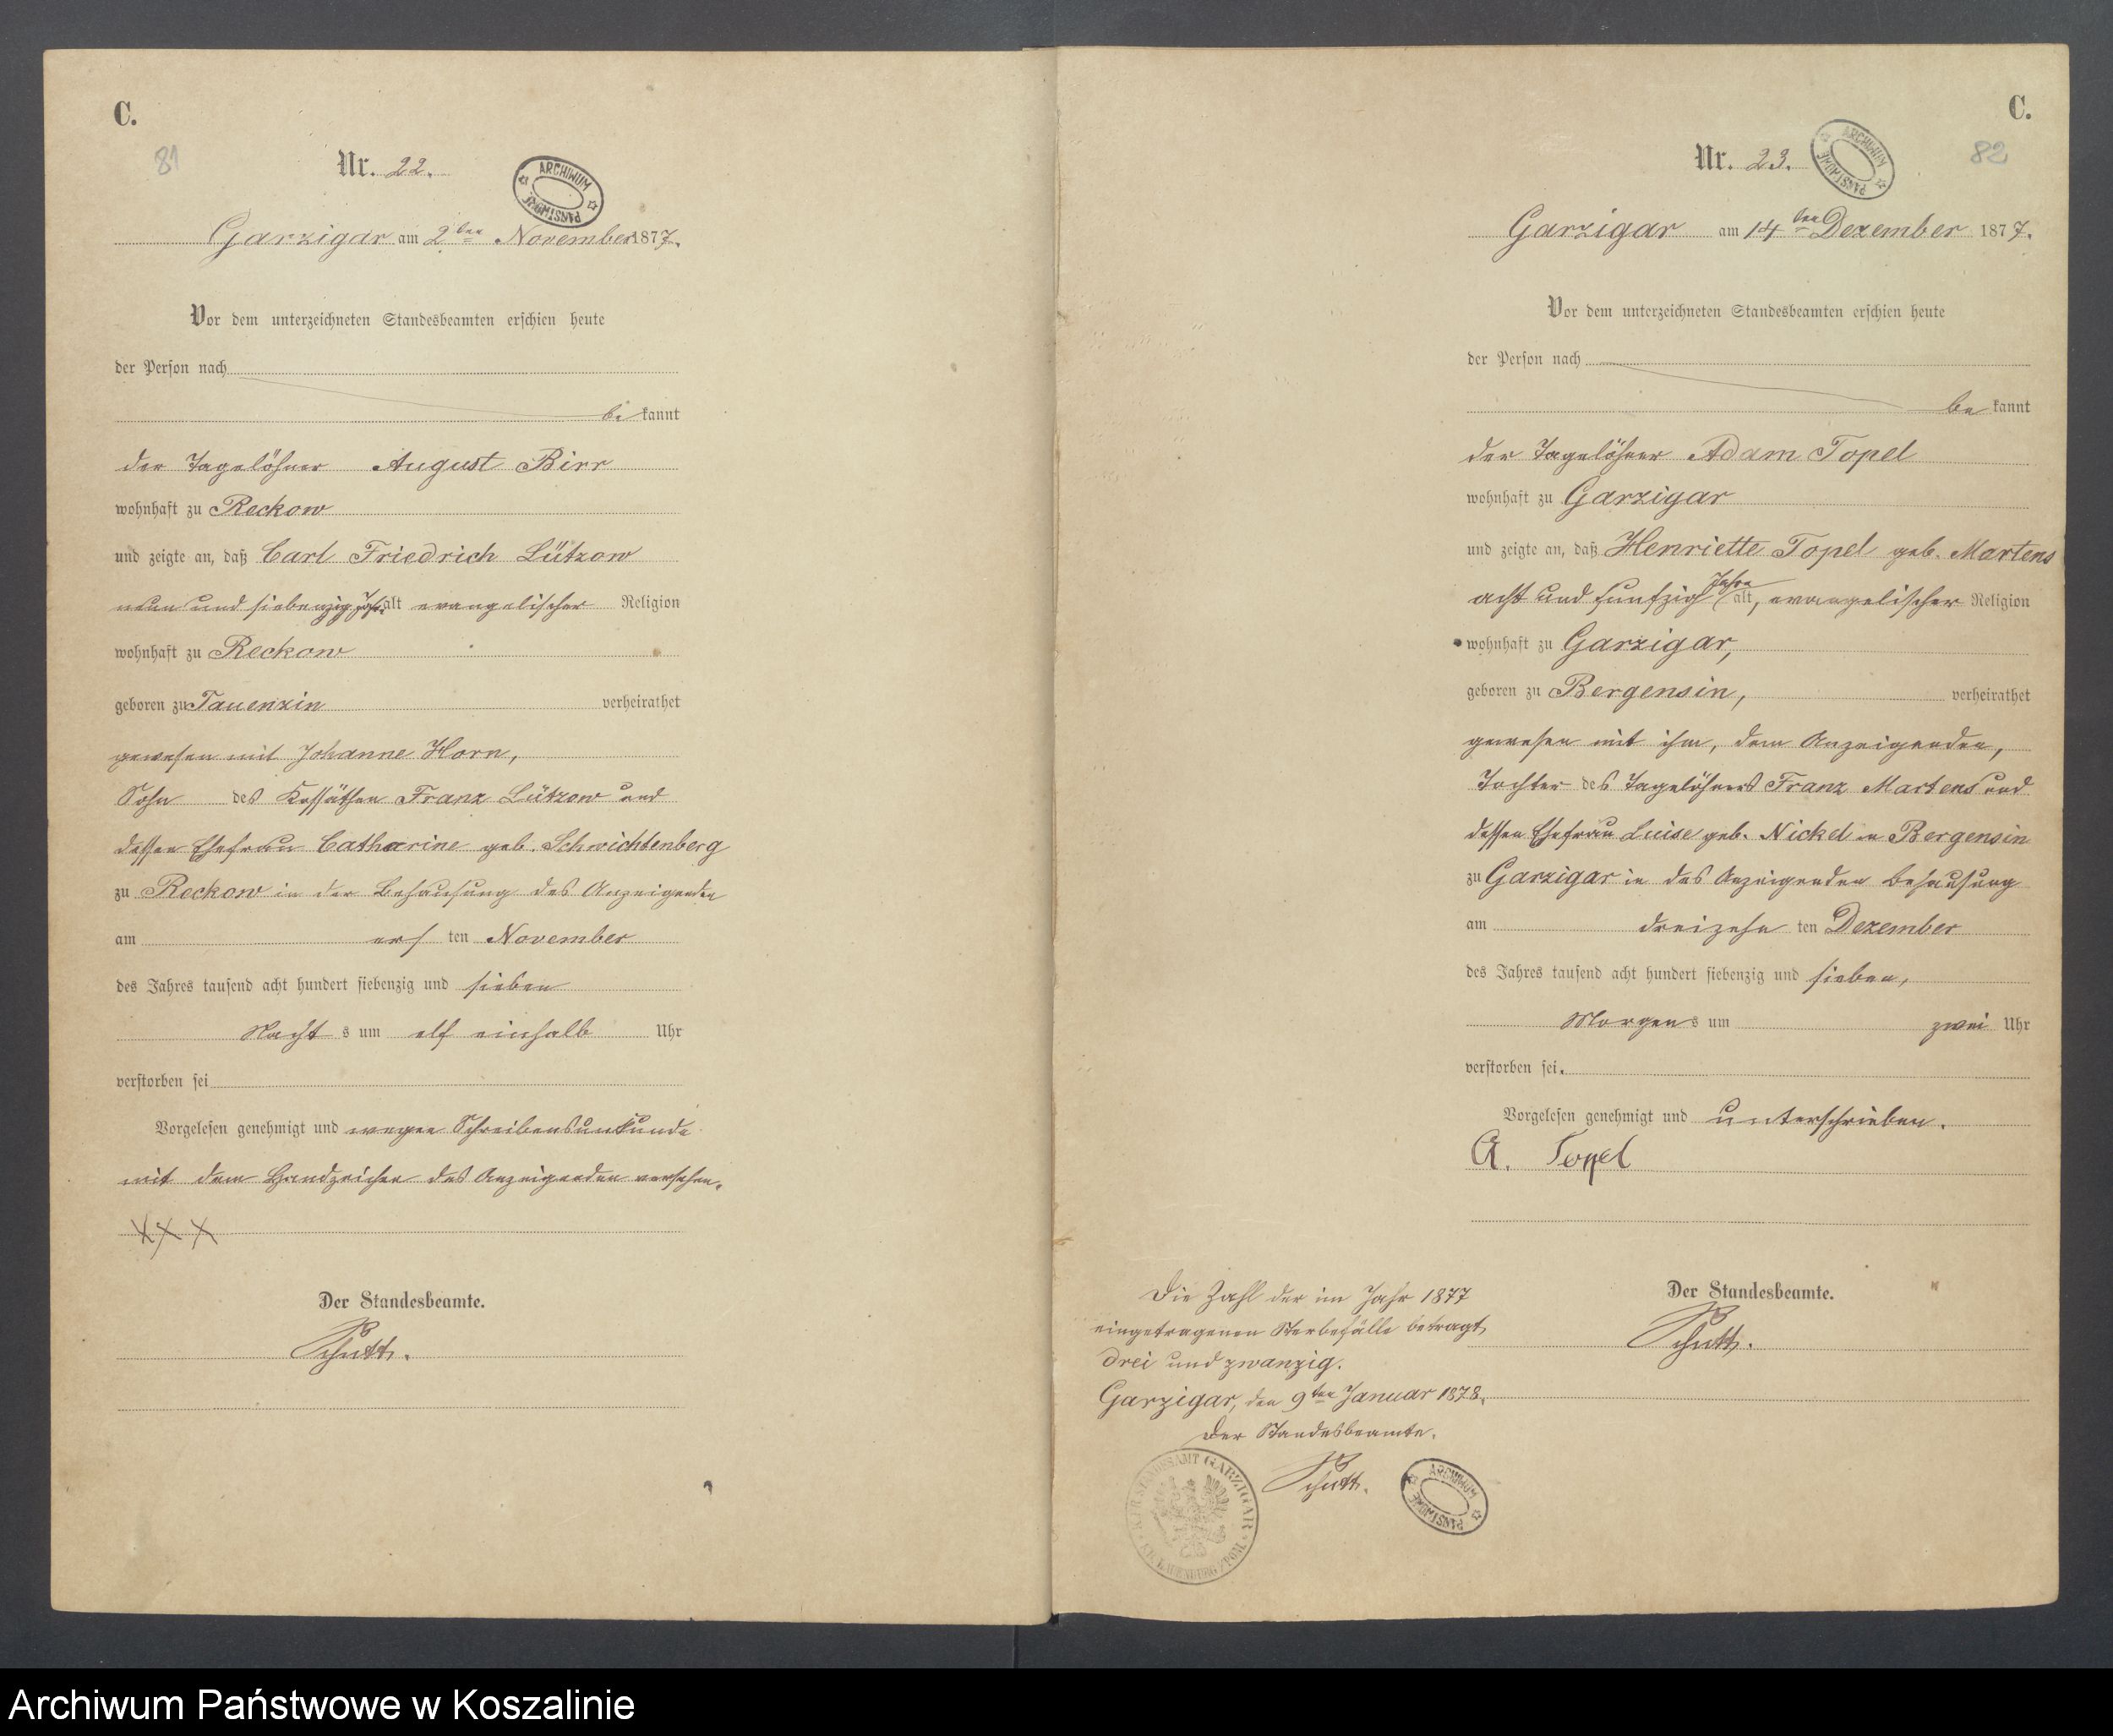 C.
81
Nr. 22.
ARCHIWUM PAŃSTWOWE
Garzigar am 2ten November 1877.
Vor dem unterzeichneten Standesbeamten erschien heute
der Person nach
be kannt
der Tagelöhner August Birr
wohnhaft zu Reckow
und zeigte an, daß Carl Friedrich Lützow
neun und siebenzig Jahr alt evangelischer Religion
wohnhaft zu Reckow
geboren zu Tauenzin verheirathet
gewesen mit Johanne Horn,
Sohn des Kossäthen Franz Lützow und
dessen Ehefrau Catharine geb. Schwichtenberg
zu Reckow in der Behausung des Anzeigenden
am ers ten November
des Jahres tausend acht hundert siebenzig und sieben
Nacht s um elf einhalb Uhr
verstorben sei
Vorgelesen genehmigt und wegen Schreibensunkunde
mit dem Handzeichen des Anzeigenden versehen.
XXX
Der Standesbeamte.
Schutt.
C.
82
Nr. 23.
ARCHIWUM PAŃSTWOWE
Garzigar am 14ten Dezember 1877.
Vor dem unterzeichneten Standesbeamten erschien heute
der Person nach
be kannt
der Tagelöhner Adam Topel
wohnhaft zu Garzigar
und zeigte an, daß Henriette Topel geb. Martens
acht und funfzig Jahre alt, evangelischer Religion
wohnhaft zu Garzigar,
geboren zu Bergensin, verheirathet
gewesen mit ihm, dem Anzeigenden,
Tochter des Tagelöhners Franz Martens und
dessen Ehefrau Luise geb. Nickel in Bergensin
zu Garzigar in des Anzeigenden Behausung
am dreizehn ten Dezember
des Jahres tausend acht hundert siebenzig und sieben,
Morgen s um zwei Uhr
verstorben sei.
Vorgelesen genehmigt und unterschrieben.
A. Topel
Der Standesbeamte.
Schutt.
Die Zahl der im Jahr 1877
eingetragenen Sterbefälle betragt
drei und zwanzig.
Garzigar, den 9ten Januar 1878.
Der Standesbeamte.
Schutt.
STANDESAMT GARZIGAR
ARCHIWUM PAŃSTWOWE
Archiwum Państwowe w Koszalinie